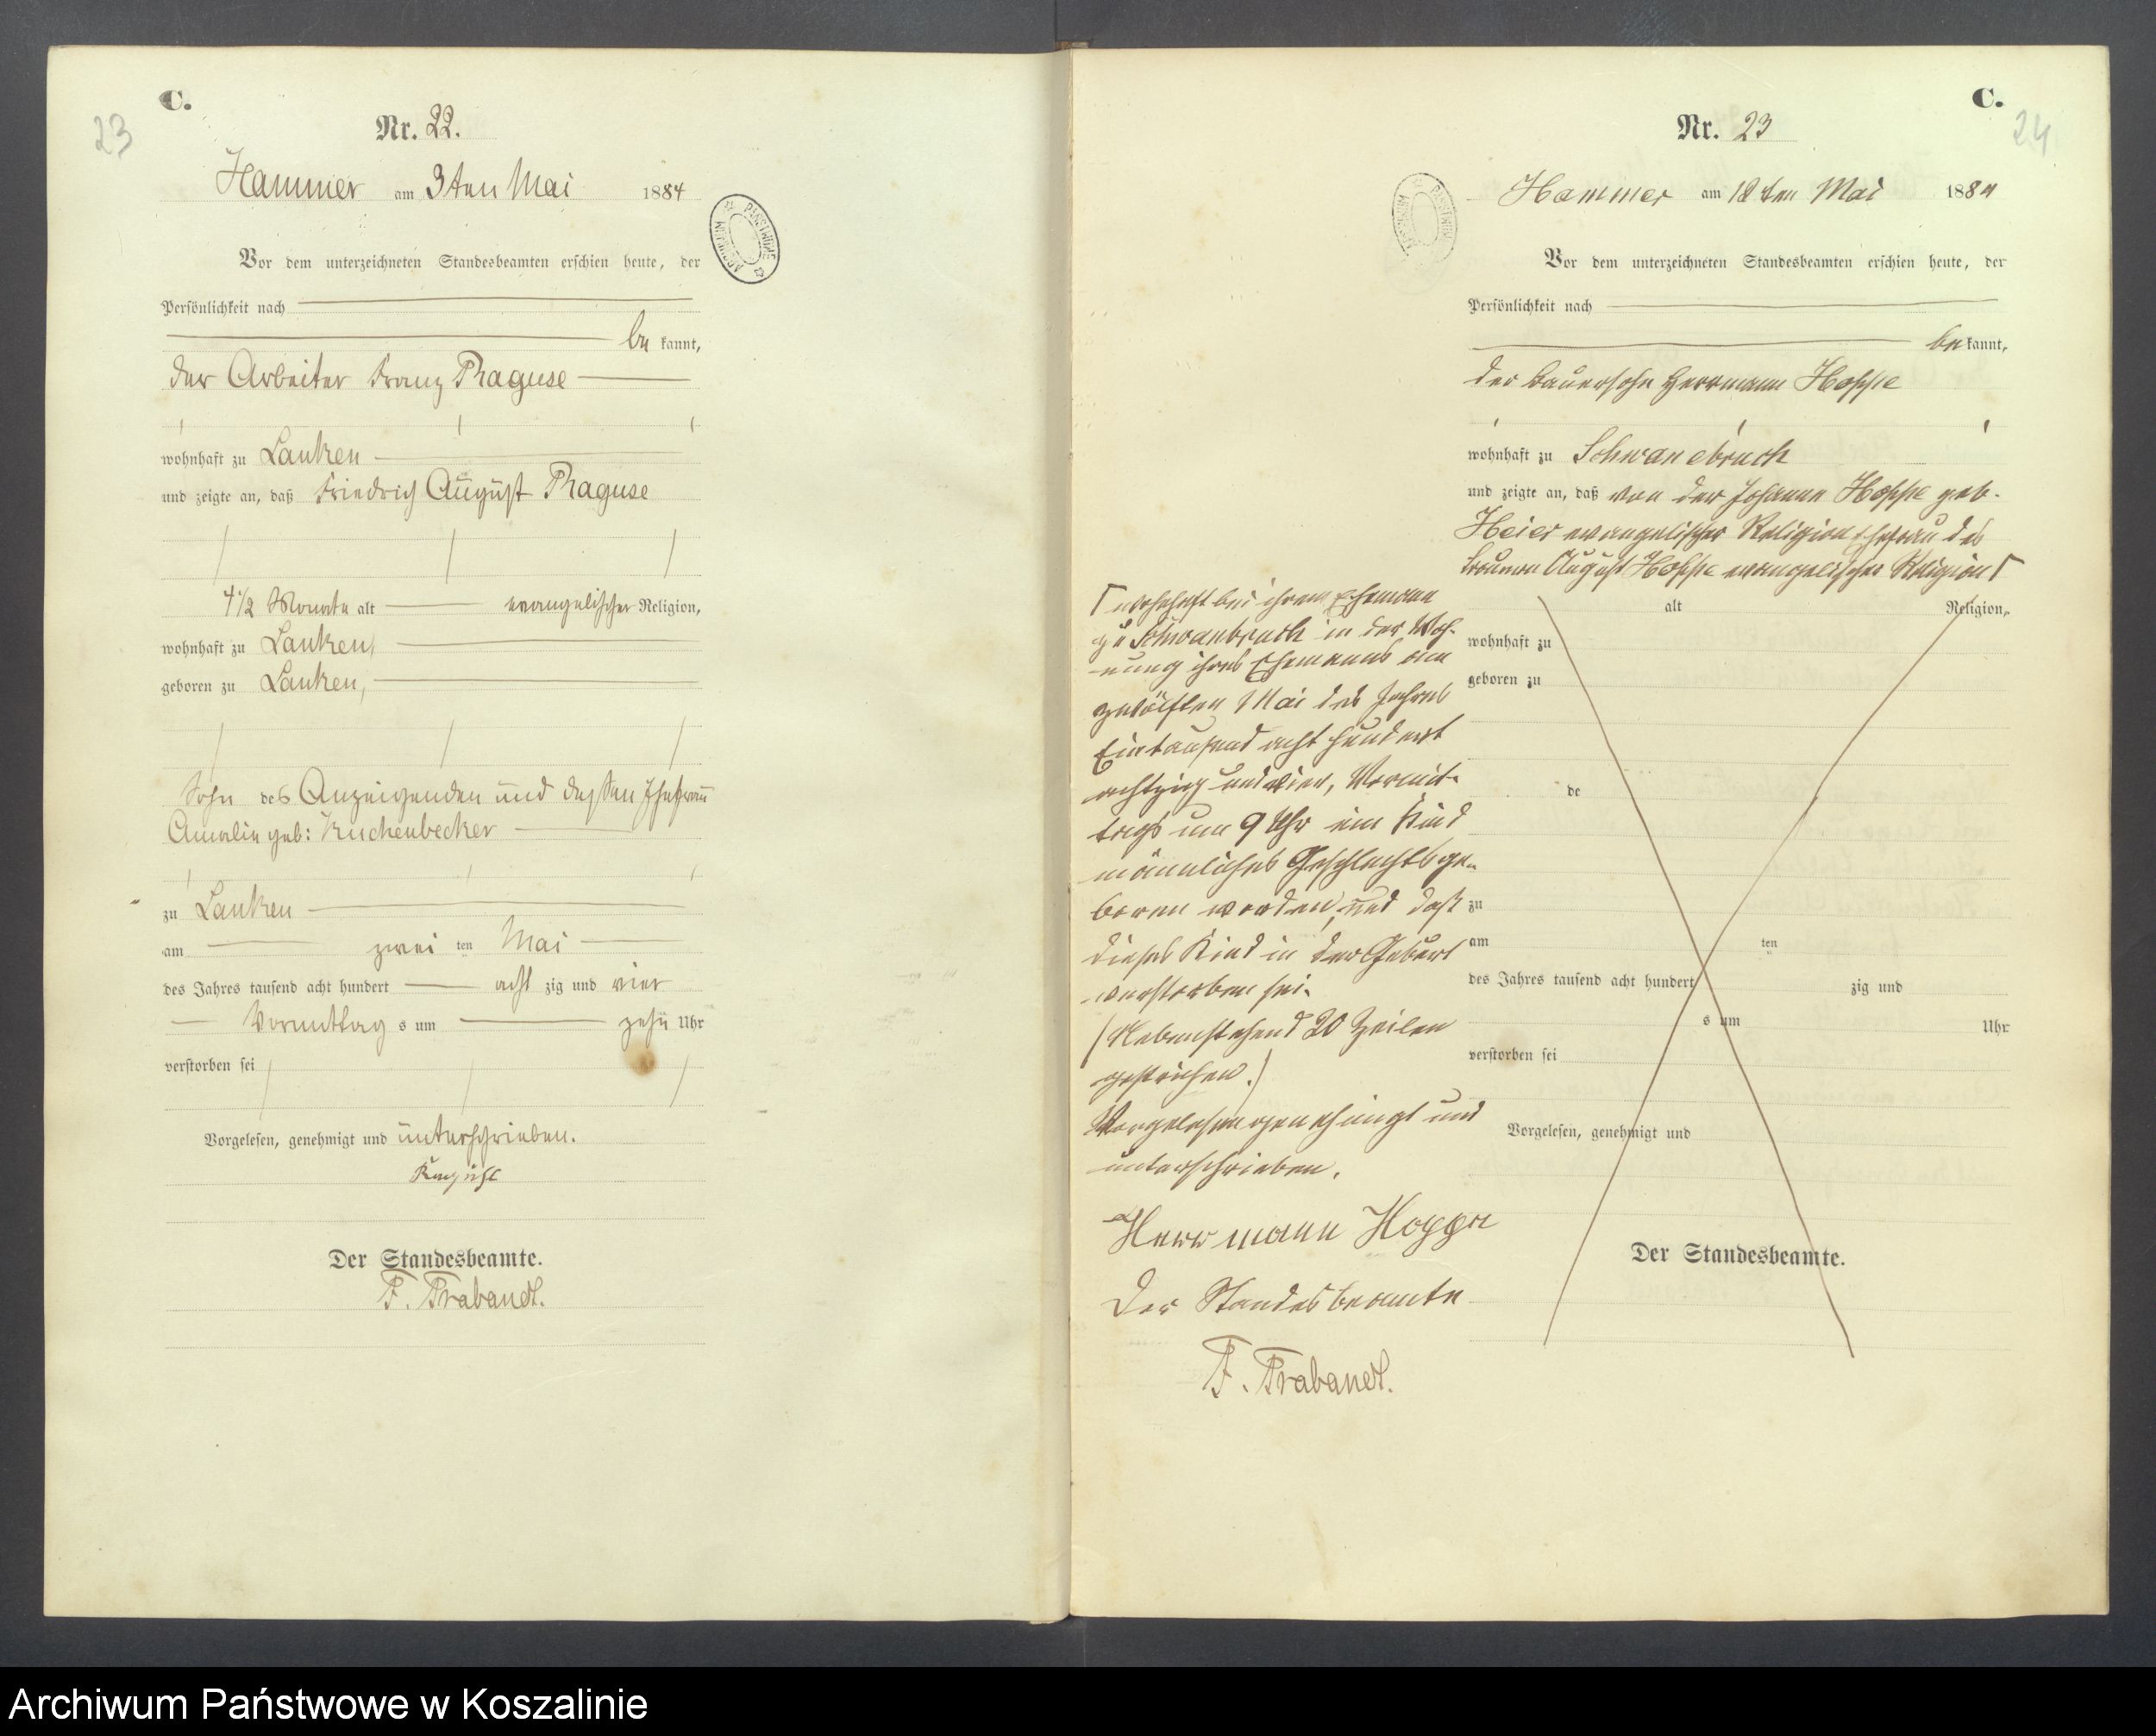 C.
23
Nr. 22.
Hammer am 3ten Mai 1884
Vor dem unterzeichneten Standesbeamten erschien heute, der
Persönlichkeit nach
be kannt,
der Arbeiter Franz Raguse
wohnhaft zu Lanken
und zeigte an, daß Friedrich August Raguse
4 1/2 Monate alt evangelischer Religion,
wohnhaft zu Lanken,
geboren zu Lanken,
Sohn des Anzeigenden und dessen Ehefrau
Amalie geb: Kuchenbecker
zu Lanken
am zwei ten Mai
des Jahres tausend acht hundert acht zig und vier
Vormittag s um zehn Uhr
verstorben sei
Vorgelesen, genehmigt und unterschrieben.
Der Standesbeamte.
F. Trabandt.
C.
24
Nr. 23
Hammer am 12ten Mai 1884
Vor dem unterzeichneten Standesbeamten erschien heute, der
Persönlichkeit nach
be kannt,
der Bauersohn Herrmann Hoppe
wohnhaft zu Schwanebruch
und zeigte an, daß von der Johanne Hoppe geb.
Heier evangelischer Religion Ehefrau des
Bauern August Hoppe evangelischer Religion
wohnhaft bei ihrem Ehemann
zu Schwanbruch in der Woh-
nung ihres Ehemanns am
zwölften Mai des Jahres
Eintausend acht hundert
achtzig und vier, Vormit-
tags um 9 Uhr ein Kind
männliches Geschlechts ge-
boren worden, und daß
dieses Kind in der Geburt
verstorben sei.
(Nebenstehend 20 Zeilen
gestrichen.)
Vorgelesen genehmigt und
unterschrieben.
Herrmann Hoppe
Der Standesbeamte
F. Trabandt.
alt Religion,
wohnhaft zu
geboren zu
de
zu
am ten
des Jahres tausend acht hundert zig und
s um Uhr
verstorben sei
Vorgelesen, genehmigt und
Der Standesbeamte.
Archiwum Państwowe w Koszalinie